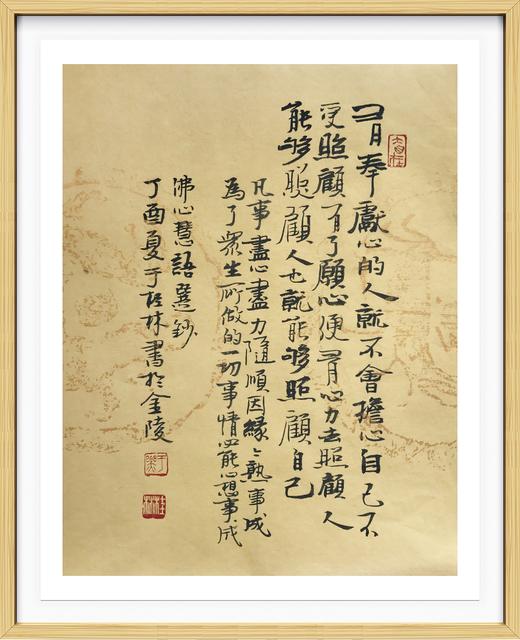 有奉獻心的人就不會擔心自己不
受照顧有了願心便有心力去照顧人
能够照顧人也就能够照顧自己
凡事盡心盡力隨順因緣〻熟事成
為了眾生所做的一切事情必能心想事成
佛心慧語選鈔
丁酉夏于桂林書於金陵
桂林